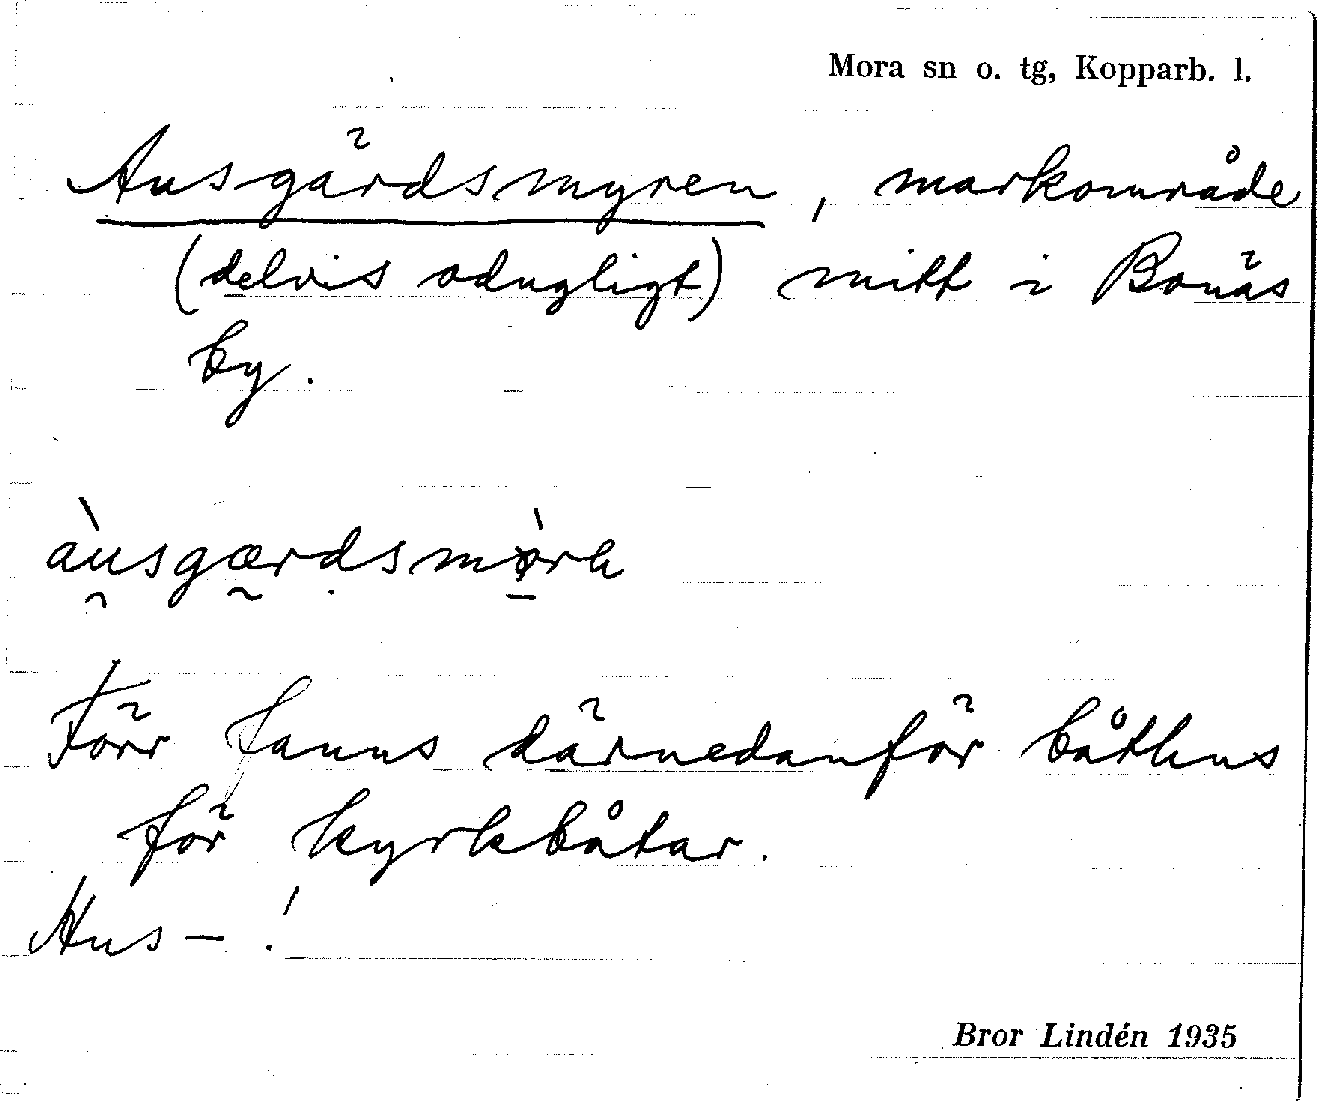 Mora sn o. tg, Kopparb. l.
Ausgärdsmyren, markområde
(delvis odugligt) mitt i Bonäs
by.
àusgærdsmòrn
Förr fanns därnedanför båthus
för kyrkbåtar.
Hus- !
Bror Lindén 1935